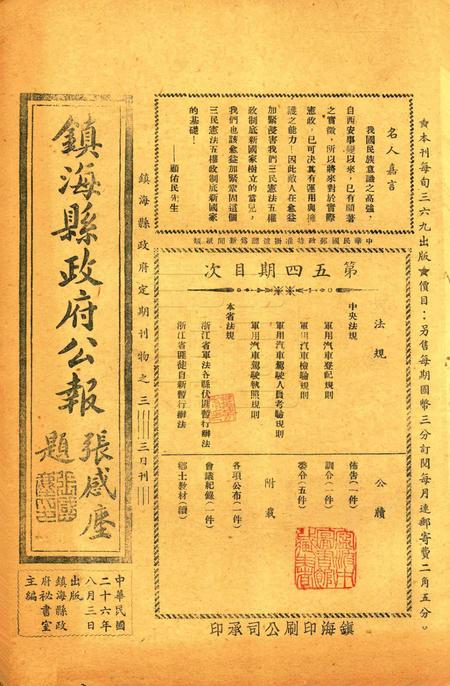 ★本刊每旬三六九出版★價目：另售每期國幣三分訂閱每月連郵寄費二角五分。
名人嘉言
我國民族意識之高強，
自西安事變以來，已有顯著
之實徵，所以將來對於實際
憲政，已可決其有運用與擁
護之能力！因此敵人在愈益
加緊侵害我們三民憲法五權
政制底新國家樹立的當兒，
我們也該愈益加緊鞏固這個
三民憲法五權政制底新國家
的基礎！
——顧佑民先生
中華民國郵政特准掛號認為新聞紙類
第五四期目次
法規
中央法規
軍用汽車登記規則
軍用汽車檢驗規則
軍用汽車駕駛人員考驗規則
軍用汽車駕駛執照規則
本省法規
浙江省軍法各縣伏匪暫行辦法
浙江省匪徒自新暫行辦法
公牘
佈告(一件)
訓令(二件)
委令(五件)
附載
各項公布(一件)
會議紀錄(一件)
鄉土教材(續)
鎮海印刷公司承印
鎮海縣政府定期刊物之三——三日刊——
鎮海縣政府公報
張感塵題
中華民國
二十六年
八月三日
出版
鎮海縣政
府祕書室
主編